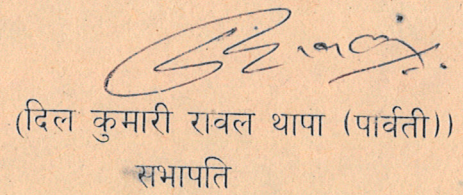 (दिल कुमारी रावल थापा (पार्वती))
सभापति